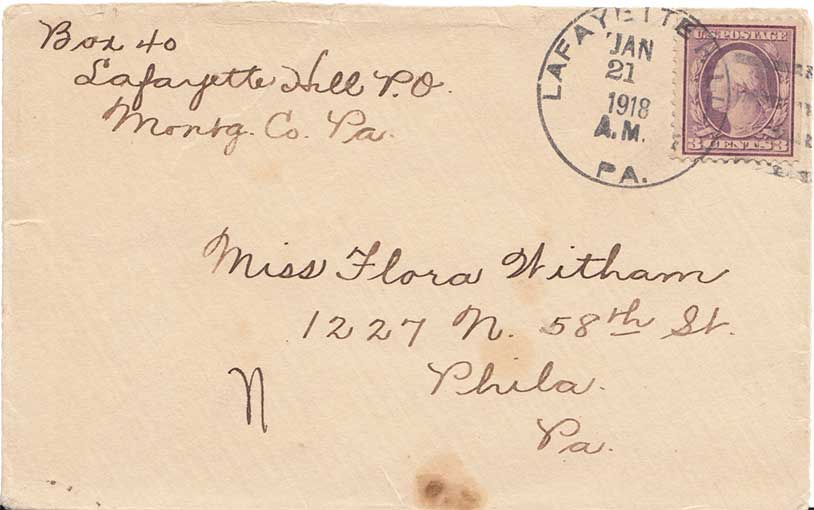 Box 40
Lafayette Hill P.O.
Montg. Co. Pa.
LAFAYETTE
JAN
21
1918
A.M.
PA.
U.S. POSTAGE
3 CENTS 3
Miss Flora Witham
1227 N. 58th St.
Phila.
Pa.
N